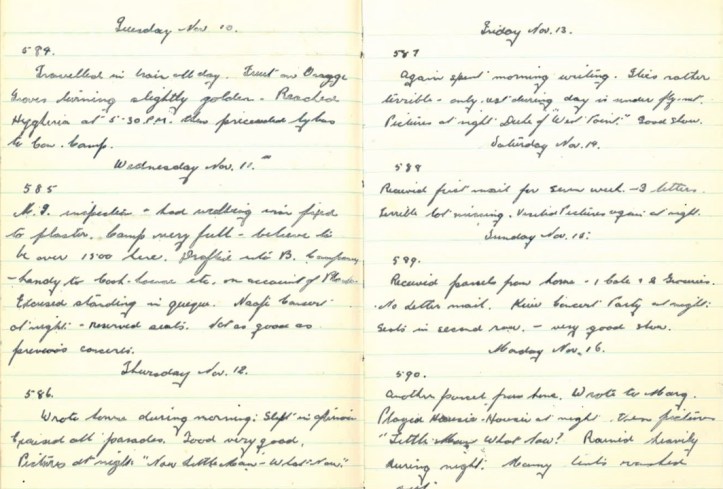 Tuesday Nov 10.
584.
Travelled in train all day. Fruit on Orange
Groves turning slightly golden. Reached
at 5.30 P.M. then proceeded by bus
to Con. Camp.
Wednesday Nov. 11.
585
M.I. inspection - had walking iron fixed
to plaster. Camp very full - believe to
be over 1500 here. Drafted into B. Company
- handy to Cook-house etc. on account of
Excused standing in queque. Naafi Concert
at night - reserved seats. Not as good as
previous concerts.
Thursday Nov. 12.
586.
Wrote home during morning: Slept in afternoon
Excused all parades. Food very good.
Pictures at night "Now Little Man - What Now".
Friday Nov. 13.
587
Again spent morning writing. Flies rather
terrible - only rest during day is under fly-net.
Pictures at night "Duke of West Point." Good show.
Saturday Nov. 14.
588
Received first mail for seven weeks - 3 letters.
Terrible lot missing. Visited Pictures again at night.
Sunday Nov. 15.
589.
Received parcels from home - 1 Cake & 2 Groceries.
No letter mail. Kiwi Concert Party at night:
Seats in second row. - very good show.
Monday Nov. 16.
590.
Another parcel from home. Wrote to Marg.
Played Housie-Housie at night then pictures
"Little Man What Now? Rained heavily
during night. Many tents washed
out.